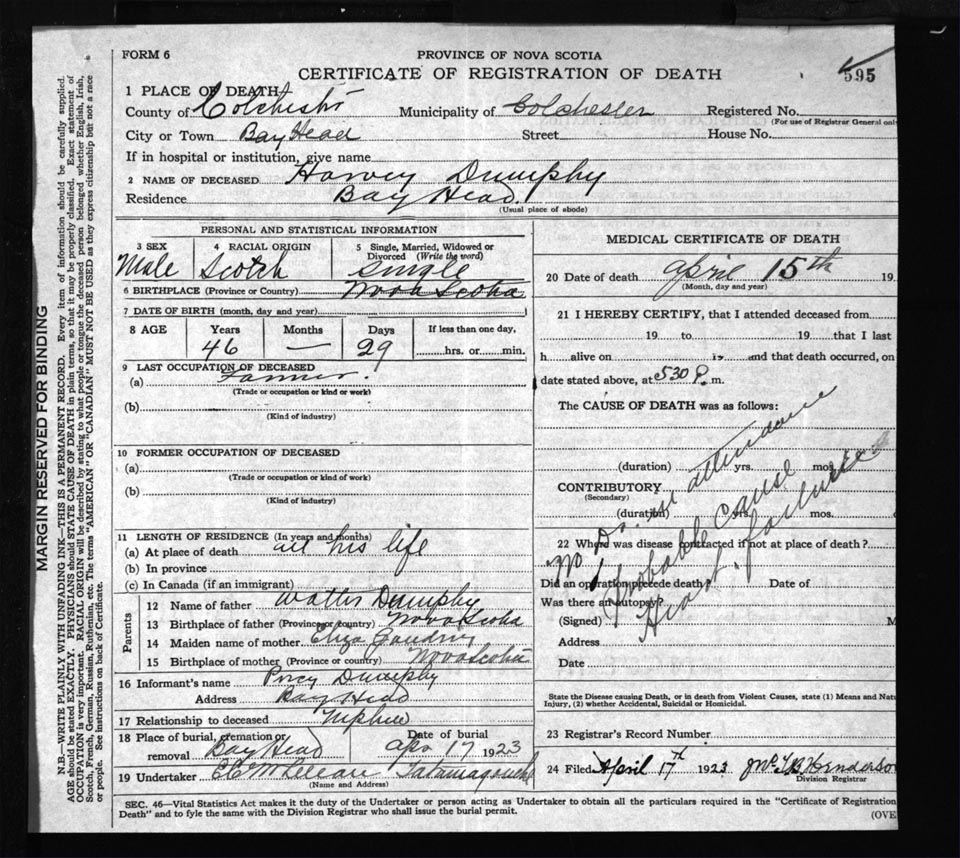 FORM 6
PROVINCE OF NOVA SCOTIA
CERTIFICATE OF REGISTRATION OF DEATH
595
1 PLACE OF DEATH
County of Colchester Municipality of Colchester Registered No.
(For use of Registrar General onl
City or Town Bay Head Street House No.
If in hospital or institution, give name
2 NAME OF DECEASED Harvey Dumphy
Residence Bay Head.
(Usual place of abode)
PERSONAL AND STATISTICAL INFORMATION
3 SEX 4 RACIAL ORIGIN 5 Single, Married, Widowed or Divorced (Write the word)
Male Scotch Single
6 BIRTHPLACE (Province or Country) Nova Scotia
7 DATE OF BIRTH (month, day and year)
8 AGE Years Months Days If less than one day,
46 — 29 hrs. or min.
9 LAST OCCUPATION OF DECEASED
(a) Farmer.
(Trade or occupation or kind or work)
(b)
(Kind of industry)
10 FORMER OCCUPATION OF DECEASED
(a)
(Trade or occupation or kind of work)
(b)
(Kind of industry)
11 LENGTH OF RESIDENCE (In years and months)
(a) At place of death all his life
(b) In province
(c) In Canada (if an immigrant)
Parents
12 Name of father Dumphy
13 Birthplace of father (Province or country) Nova Scotia
14 Maiden name of mother Eliza
15 Birthplace of mother (Province or country) Nova Scotia
16 Informant's name Percy Dumphy
Address Bay Head
17 Relationship to deceased Nephew
18 Place of burial, cremation or removal Bay Head Date of burial Apr 17 1923
19 Undertaker Tatamagouche
(Name and Address)
MEDICAL CERTIFICATE OF DEATH
20 Date of death April 15th 19
(Month, day and year)
21 I HEREBY CERTIFY, that I attended deceased from
19 to 19 that I last
h alive on 19 and that death occurred, on
date stated above, at 530 P. m.
The CAUSE OF DEATH was as follows:
(duration) yrs. mos.
CONTRIBUTORY
(Secondary)
(duration) yrs. mos.
22 Where was disease contracted if not at place of death?
Did an operation precede death? Date of
Was there an autopsy
(Signed) M
Address
Date
no Dr. in attendance
Probable cause
Heart failure
State the Disease causing Death, or in death from Violent Causes, state (1) Means and Natu
Injury, (2) whether Accidental, Suicidal or Homicidal.
23 Registrar's Record Number
24 Filed April 17th 1923 Henderson
Division Registrar
SEC. 46—Vital Statistics Act makes it the duty of the Undertaker or person acting as Undertaker to obtain all the particulars required in the "Certificate of Registration
Death" and to fyle the same with the Division Registrar who shall issue the burial permit.
(OVE
MARGIN RESERVED FOR BINDING
N.B.—WRITE PLAINLY WITH UNFADING INK—THIS IS A PERMANENT RECORD. Every item of information should be carefully supplied.
AGE should be stated EXACTLY. PHYSICIANS should STATE CAUSE OF DEATH in plain terms, so that it may be properly classified. Exact statement of
OCCUPATION is very important. RACIAL ORIGIN will be described by stating to what people or tongue the deceased person belonged whether English, Irish,
Scotch, French, German, Russian, Ruthenian, etc. The terms "AMERICAN" OR "CANADIAN" MUST NOT BE USED as they express citizenship but not a race
or people. See instructions on back of Certificate.